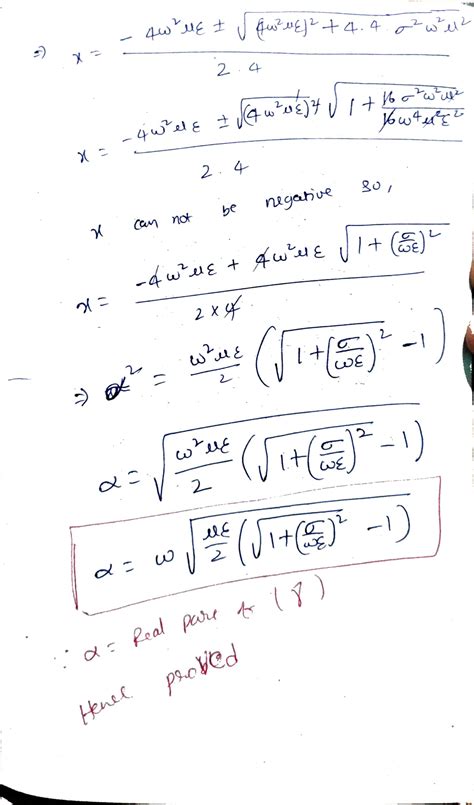 ⇒ x = (-4ω²με ± √((4ω²με)² + 4.4 σ²ω²μ²)) / 2.4
x = (-4ω²με ± √(4ω²με)² √(1 + 16σ²ω²μ²/16ω⁴μ²ε²)) / 2.4
x can not be negative so,
x = (-4ω²με + 4ω²με √(1+(σ/ωε)²)) / 2×4
⇒ α² = ω²με/2 (√(1+(σ/ωε)²) -1)
α = √(ω²με/2 (√(1+(σ/ωε)²) -1))
α = ω √(με/2 (√(1+(σ/ωε)²) -1))
∴ α = Real (γ)
Hence proved